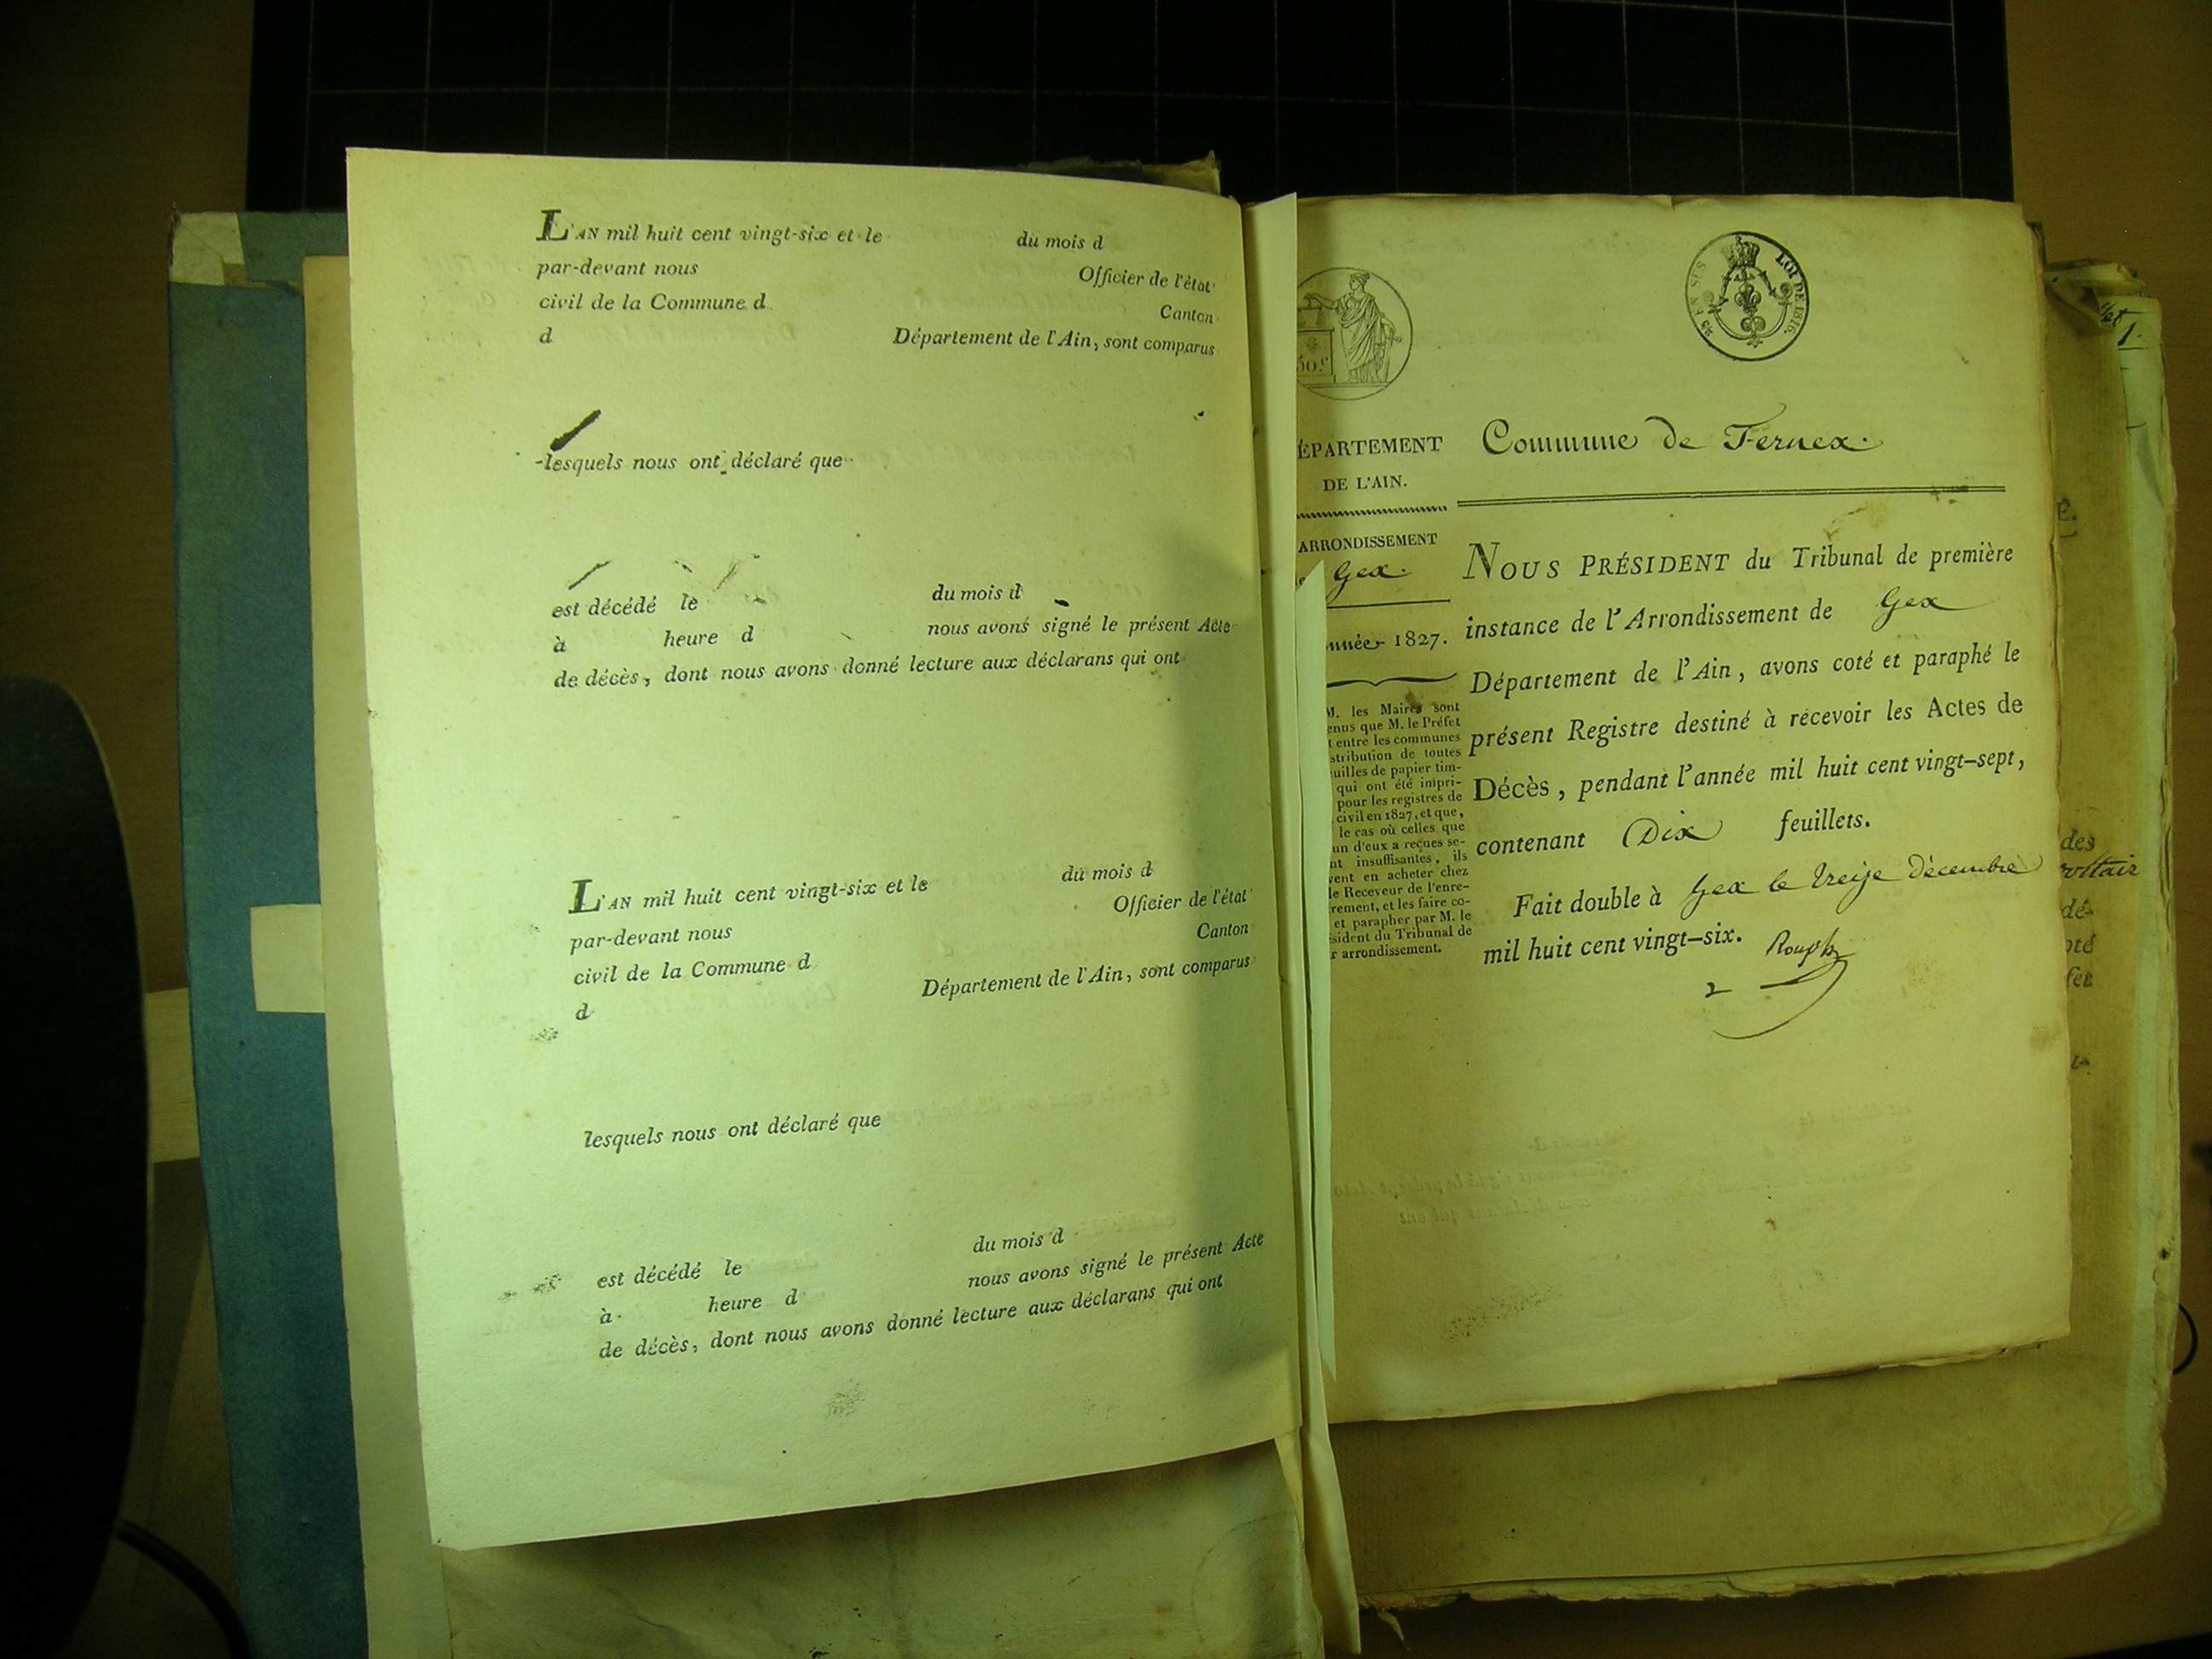 L'AN mil huit cent vingt-six et le du mois d
par-devant nous Officier de l'état
civil de la Commune d Canton
d Département de l'Ain, sont comparus
lesquels nous ont déclaré que
est décédé le du mois d
à heure d nous avons signé le présent Acte
de décès, dont nous avons donné lecture aux déclarans qui ont
L'AN mil huit cent vingt-six et le du mois d
par-devant nous Officier de l'état
civil de la Commune d Canton
d Département de l'Ain, sont comparus
lesquels nous ont déclaré que
est décédé le du mois d
à heure d nous avons signé le présent Acte
de décès, dont nous avons donné lecture aux déclarans qui ont
50.c
EN SUS LOI DE 1816.
ÉPARTEMENT
DE L'AIN.
ARRONDISSEMENT
Gex.
nnée 1827.
M. les Maires sont
enus que M. le Préfet
t entre les communes
stribution de toutes
uilles de papier tim-
qui ont été impri-
pour les registres de
civil en 1827, et que,
le cas où celles que
un d'eux a reçues se-
nt insuffisantes, ils
vent en acheter chez
le Receveur de l'enre-
rement, et les faire co-
et parapher par M. le
sident du Tribunal de
r arrondissement.
Commune de Fernex.
NOUS PRÉSIDENT du Tribunal de première
instance de l'Arrondissement de Gex
Département de l'Ain, avons coté et paraphé le
présent Registre destiné à recevoir les Actes de
Décès, pendant l'année mil huit cent vingt-sept,
contenant Dix feuillets.
Fait double à Gex le treize Décembre
mil huit cent vingt-six.
des
voltair
dé-
oté